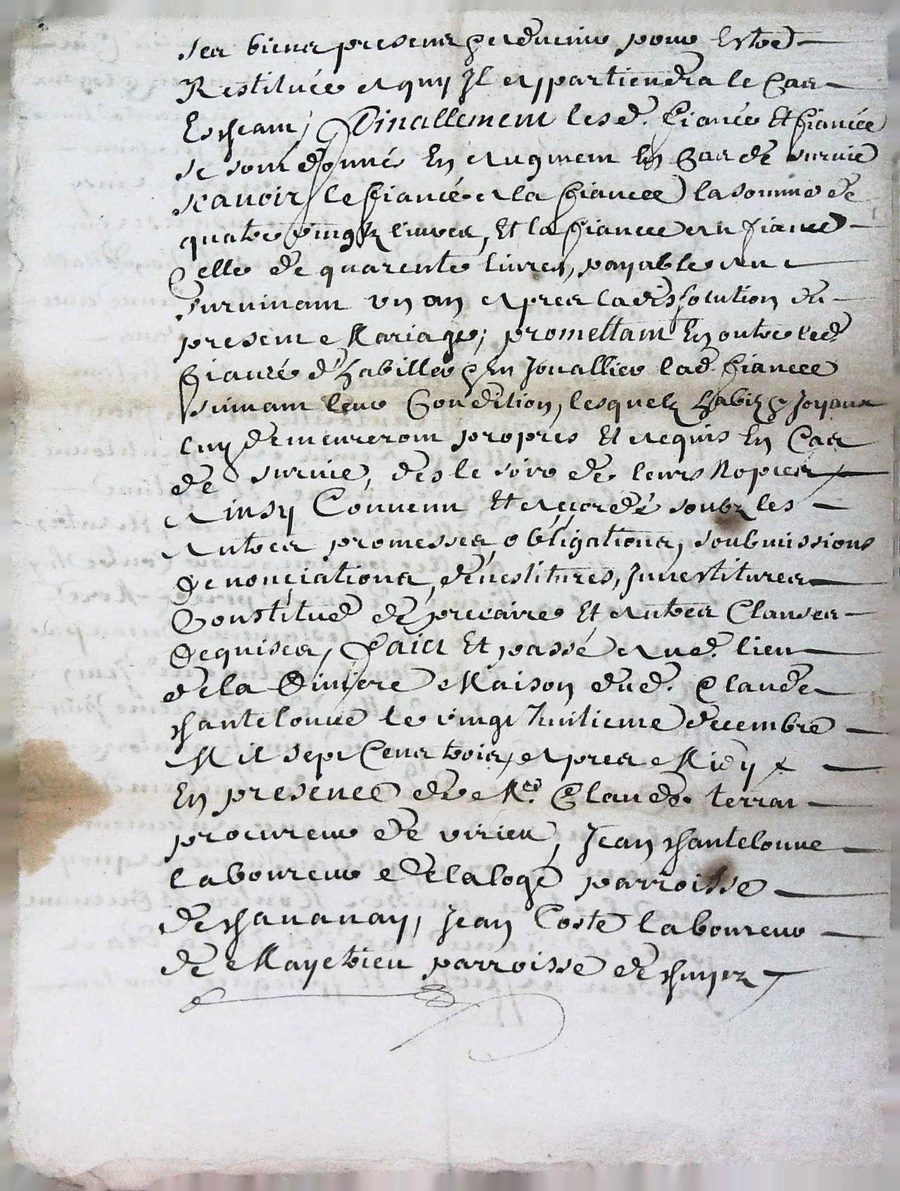 ses biens presens & advenir pour Estre
Restituée a quy Il appartiendra le Cas
Escheant, Finallement lesd. fiancé Et fiancée
se sont donné En augment En Cas de survie
scavoir le fiancé a la fiancée la somme de
quatre vingtz livres, Et la fiancée au fiancé
Celle de quarente livres, payable au
survivant un an apres la dissolution du
present Mariage, promettant En outre led.
fiancé d'habiller & En Jouallier lad. fiancée
suivant leur Condition, lesquelz habitz & Joyaux
luy demeureront propres Et acquis En Cas
de survie, des le soir de leurs Nopces
Ainsy Convenu Et accordé soubz les
Autres promesses, obligations, soubmissions
Renonciations, devestitures, Investitures
Constitud de precaire Et autres Clauses
Requises, Faict Et passé aud. lieu
de la Riviere Maison dud. Claude
Chantelouve le vingt huitieme decembre
Mil sept Cens trois, apres Midy
En presence de Me. Claude terrat
procureur de virieu, Jean Chantelouve
laboureur de laloge parroisse
de Chavanay, Jean Coste laboureur
de Mayetrieu parroisse de Chuyez